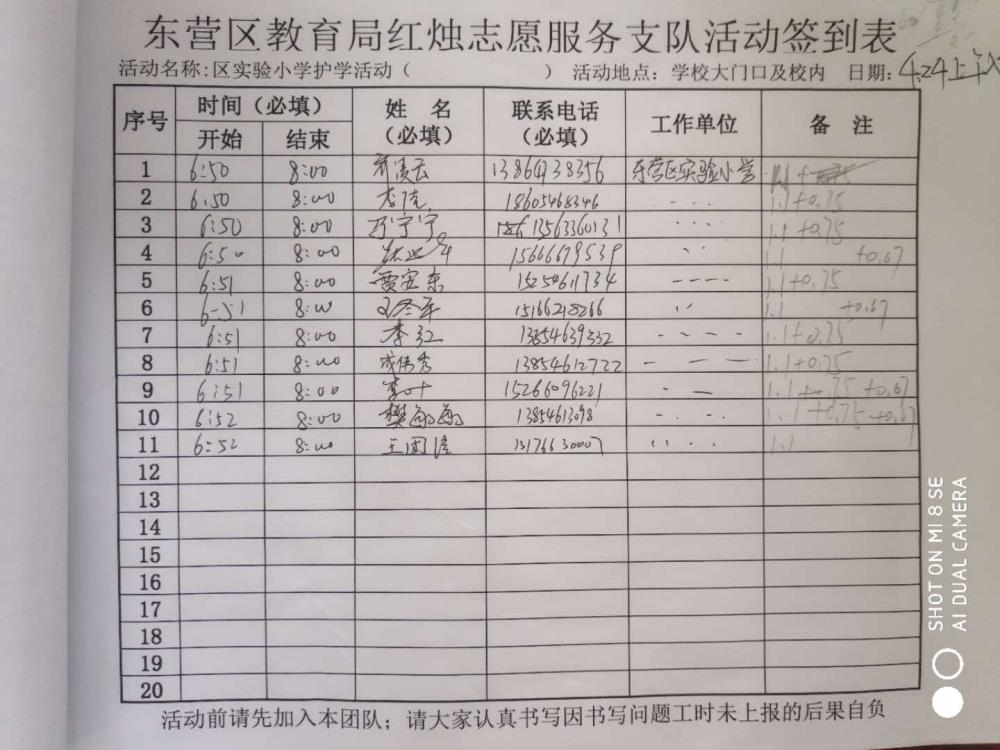 东营区教育局红烛志愿服务支队活动签到表
活动名称:区实验小学护学活动（ ） 活动地点：学校大门口及校内 日期：4.24上午
序号 时间（必填） 姓名（必填） 联系电话（必填） 工作单位 备注
开始 结束
1 6:50 8:00 13864738356 东营区实验小学
2 6:50 8:00 18605468346 1.1+0.75
3 6:50 8:00 宁宁 13563360131 1.1+0.75
4 6:50 8:00 15666679539 1.1 +0.67
5 6:51 8:00 贾安东 15254611734 1.1+0.75
6 6:51 8:00 王冬军 15166218266 1.1 +0.67
7 6:51 8:00 李红 13854639332 1.1+0.75
8 6:51 8:00 成伟秀 13854612722 1.1+0.75
9 6:51 8:00 李叶 15266096221 1.1+0.75 +0.67
10 6:52 8:00 樊 13854613098 1.1+0.75 +0.67
11 6:52 8:00 王国 1.1
12
13
14
15
16
17
18
19
20
活动前请先加入本团队；请大家认真书写因书写问题工时未上报的后果自负
SHOT ON MI 8 SE
AI DUAL CAMERA